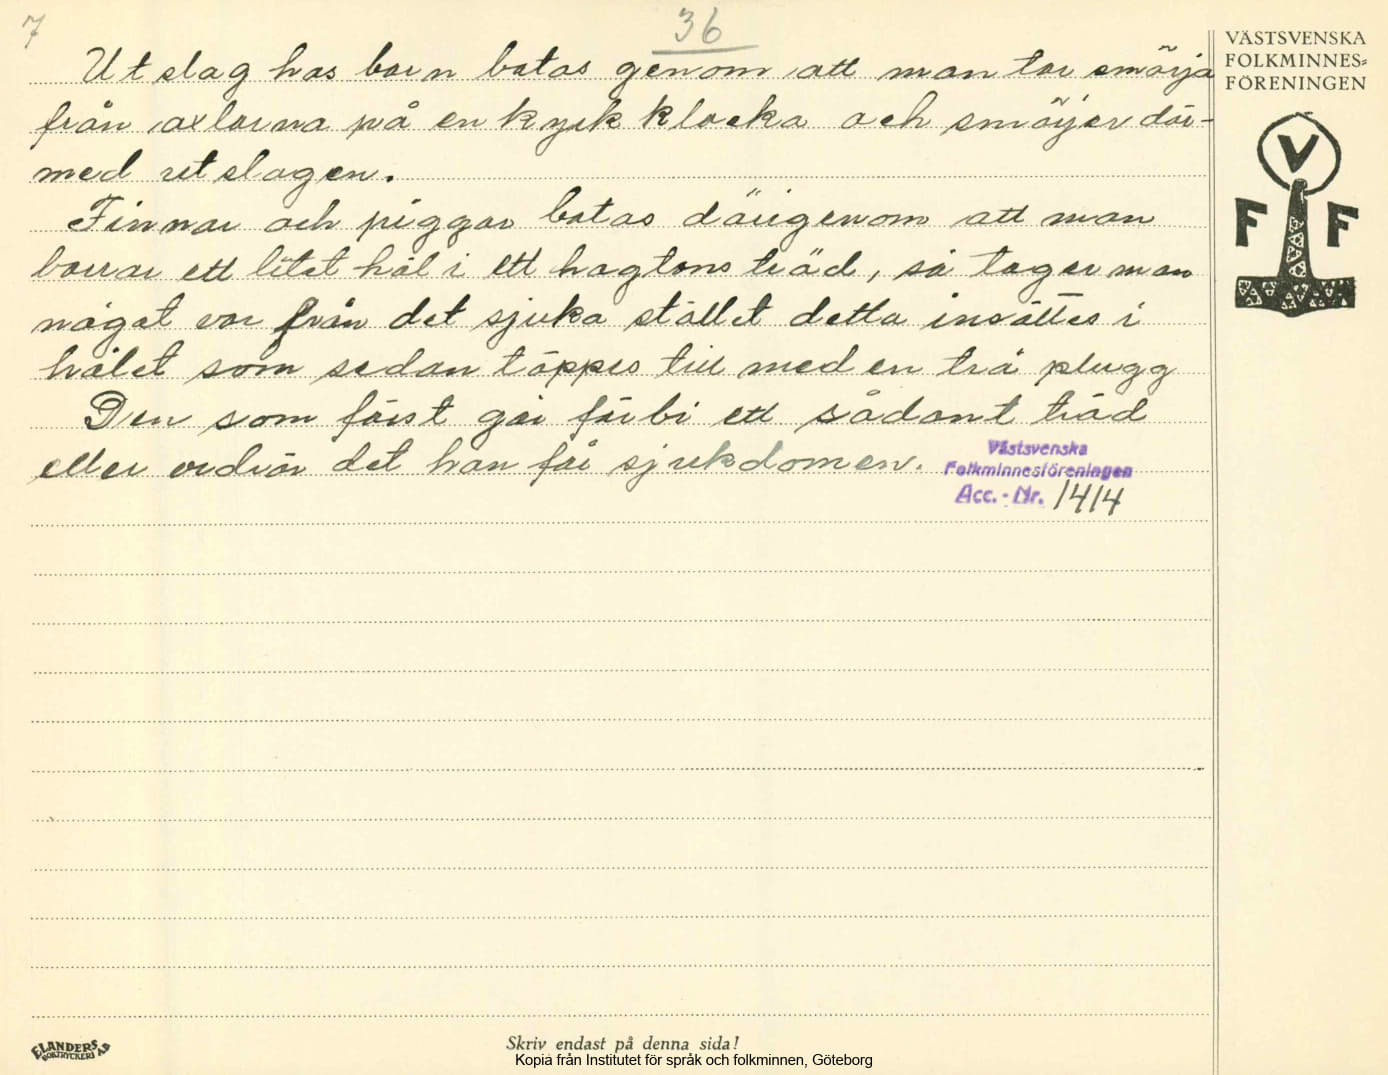 7
36
Utslag hos barn botas genom att man tar smörja
från axlarna på en kyrkklocka och smörjer där-
med utslagen.
Finnar och piggar botas därigenom att man
borrar ett litet hål i ett hagtorns träd, så tager man
något var från det sjuka stället detta insättes i
hålet som sedan täppes till med en trä plugg
Den som först går förbi ett sådant träd
eller vidrör det han får sjukdomen.
Västsvenska
Folkminnesföreningen
Acc. - Nr. 1414
VÄSTSVENSKA
FOLKMINNES=
FÖRENINGEN
V
F F
ELANDERS
BOKTRYCKERI AB
Skriv endast på denna sida!
Kopia från Institutet för språk och folkminnen, Göteborg